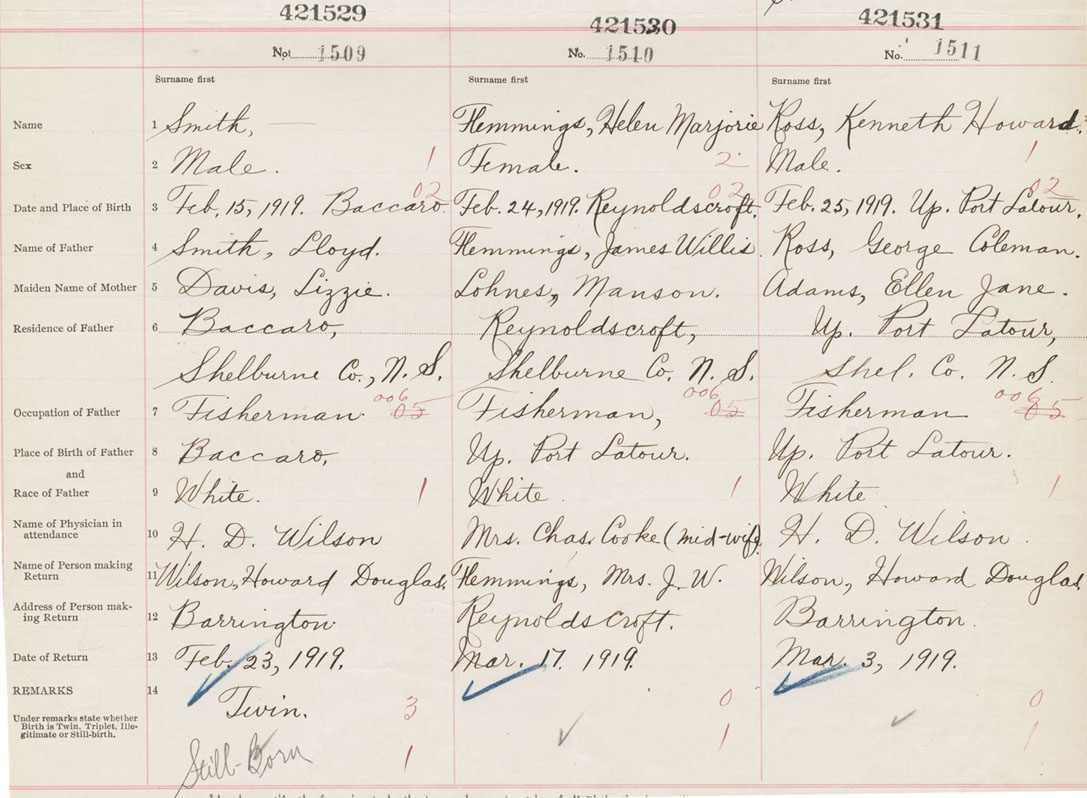 421529 421530 421531
No. 1509 No. 1510 No. 1511
Surname first Surname first Surname first
Name 1 Smith, — Flemmings, Helen Marjorie Ross, Kenneth Howard.
Sex 2 Male. 1 Female. 2 Male. 1
02 02 02
Date and Place of Birth 3 Feb. 15, 1919. Baccaro Feb. 24, 1919. Reynoldscroft. Feb. 25, 1919. Up. Port Latour.
Name of Father 4 Smith, Lloyd. Flemmings, James Willis. Ross, George Coleman.
Maiden Name of Mother 5 Davis, Lizzie. Lohnes, Manson. Adams, Ellen Jane.
Residence of Father 6 Baccaro, Reynoldscroft, Up. Port Latour,
Shelburne Co., N. S. Shelburne Co. N. S. Shel. Co. N. S.
006 006 006
Occupation of Father 7 Fisherman 05 Fisherman, 05 Fisherman 05
Place of Birth of Father 8 Baccaro, Up. Port Latour. Up. Port Latour.
and
Race of Father 9 White. 1 White 1 White 1
Name of Physician in
attendance 10 H. D. Wilson Mrs. Chas. Cooke (mid-wife) H. D. Wilson.
Name of Person making
Return 11 Wilson, Howard Douglas. Flemmings, Mrs. J. W. Wilson, Howard Douglas.
Address of Person mak-
ing Return 12 Barrington Reynoldscroft. Barrington.
Date of Return 13 Feb. 23, 1919. Mar. 17. 1919. Mar. 3, 1919.
REMARKS 14 Twin. 3 0 0
Under remarks state whether
Birth is Twin, Triplet, Ille-
gitimate or Still-birth.
Still-Born 1 1 1